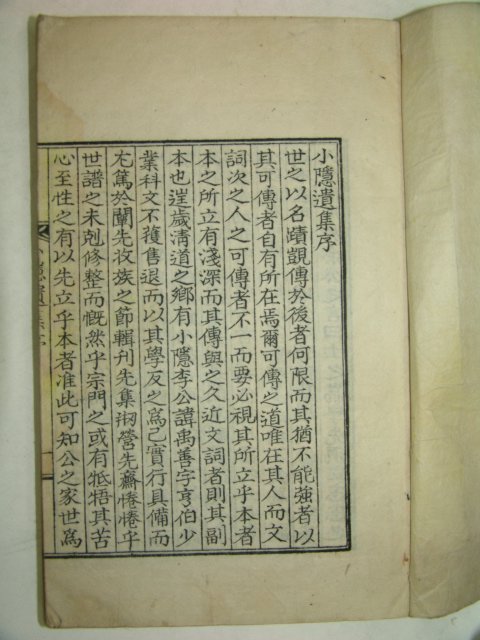 小隱遺集序
世之以名蹟覬傳於後者何限而其猶不能強者以
其可傳者自有所在焉爾可傳之道唯在其人而文
詞次之人之可傳者不一而要必視其所立乎本者
本之所立有淺深而其傳與之久近文詞者則其副
本也逞歲淸道之鄕有小隱李公諱禹善字亨伯少
業科文不獲售退而以其學反之爲己實行具備而
尤篤於闡先收族之節輯刊先集捌營先齋惓惓乎
世譜之未剋修整而慨然乎宗門之或有牴牾其苦
心至性之有以先立乎本者准此可知公之家世爲